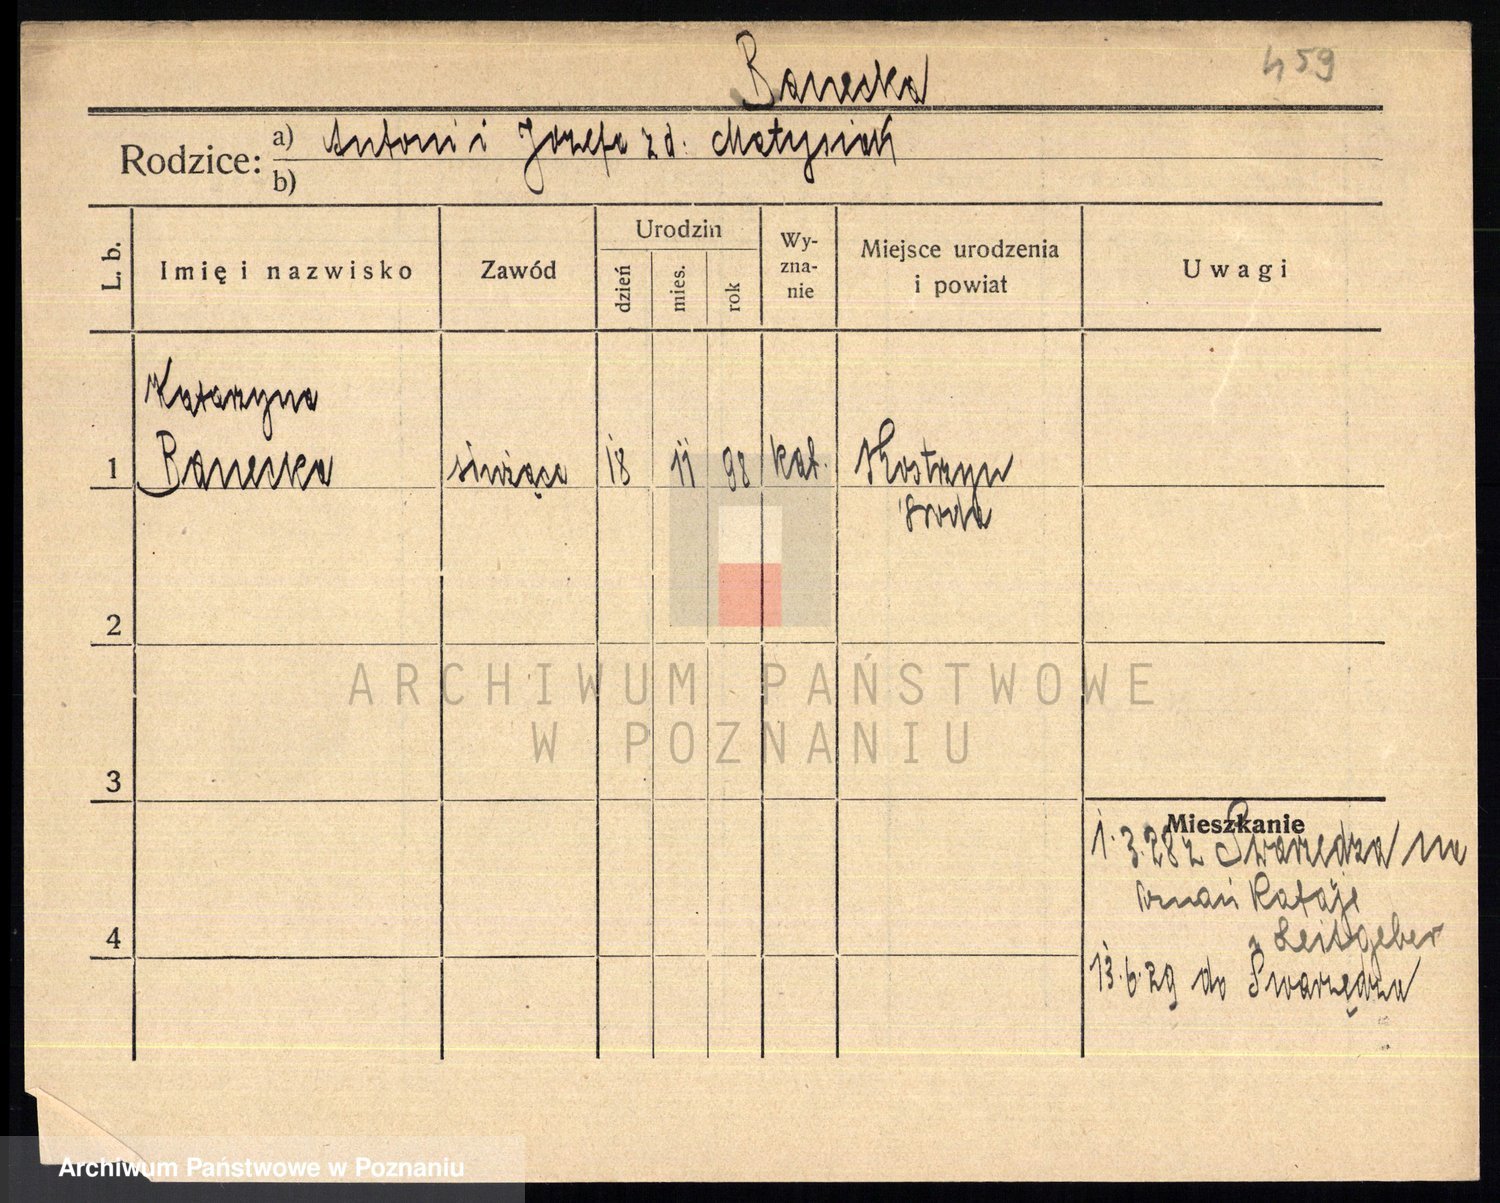 459
Banecka
Rodzice: a) Antoni i Józefa z d. Matysiak
b)
L. b.
Imię i nazwisko
Zawód
Urodzin
dzień
mies.
rok
Wy-
zna-
nie
Miejsce urodzenia
i powiat
Uwagi
Katarzyna
1 Banecka służąca 18 11 98 kat. Kostrzyn
Środa
2
3
4
Mieszkanie
1.3.28 z Swarzędza na
Rataje
Leitgeber
13.6.29 do Swarzędza
ARCHIWUM PAŃSTWOWE
W POZNANIU
Archiwum Państwowe w Poznaniu